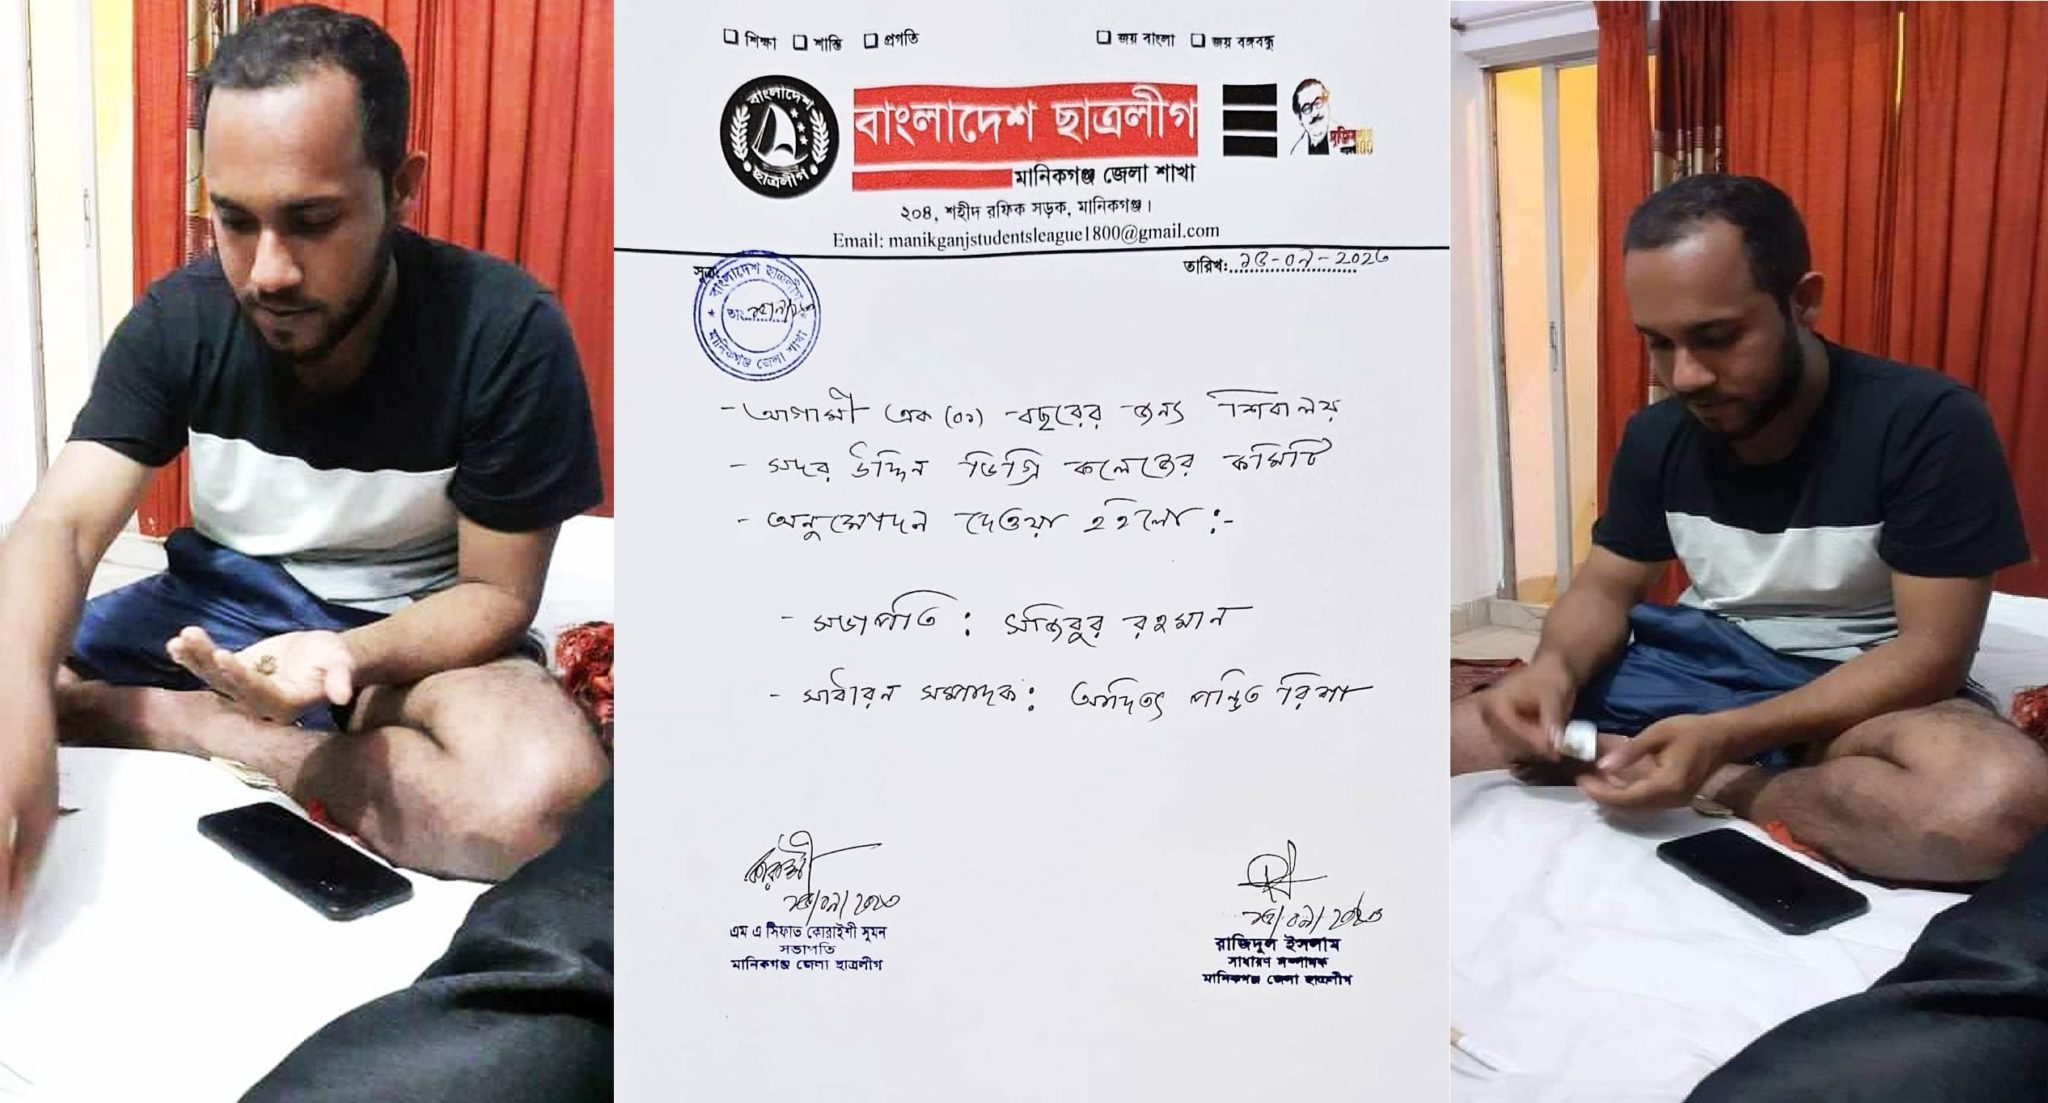 শিক্ষা শান্তি প্রগতি
জয় বাংলা জয় বঙ্গবন্ধু
বাংলাদেশ ছাত্রলীগ
বাংলাদেশ ছাত্রলীগ
মানিকগঞ্জ জেলা শাখা
২০৪, শহীদ রফিক সড়ক, মানিকগঞ্জ।
Email: manikganjstudentsleague1800@gmail.com
সূত্র:
তারিখ: ১৫-০৭-২০২৩
বাংলাদেশ ছাত্রলীগ
মানিকগঞ্জ জেলা শাখা
- আগামী এক (০১) বছরের জন্য শিবালয়
- সদর উদ্দিন ডিগ্রি কলেজের কমিটি
- অনুমোদন দেওয়া হইলো :-
- সভাপতি : সজিবুর রহমান
- সাধারন সম্পাদক : আদিত্য পন্ডিত রিশা
১৫/০৭/২০২৩
এম এ সিফাত কোরাইশী সুমন
সভাপতি
মানিকগঞ্জ জেলা ছাত্রলীগ
১৫/০৭/২০২৩
রাজিদুল ইসলাম
সাধারণ সম্পাদক
মানিকগঞ্জ জেলা ছাত্রলীগ